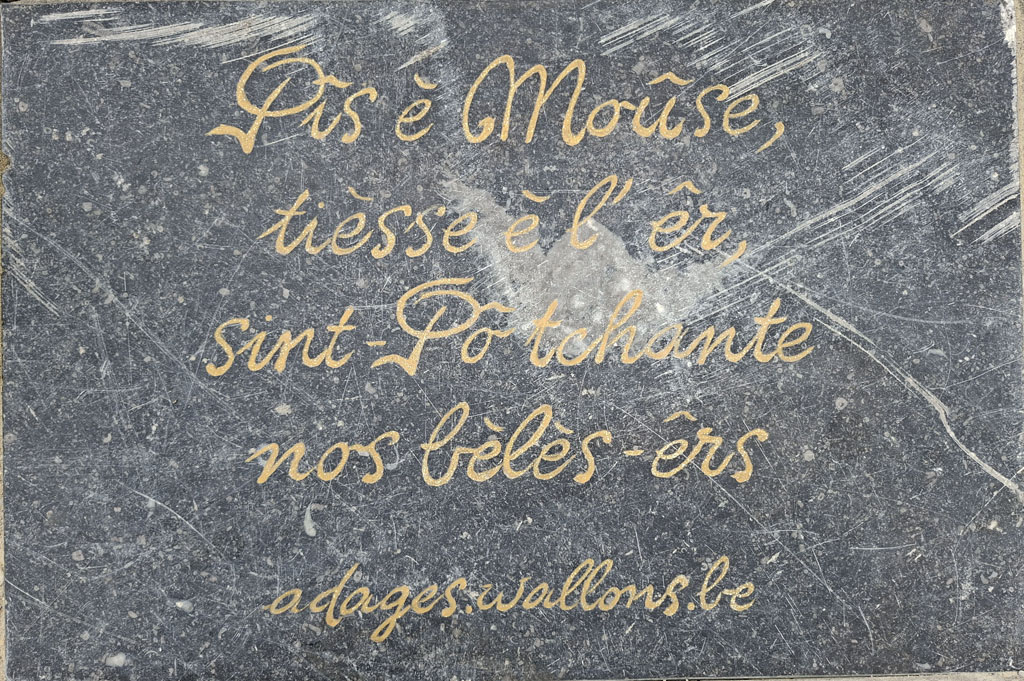 Pîs è Moûse,
tièsse è l' êr,
sint-Pô tchante
nos bèlès-êrs
adages.wallons.be